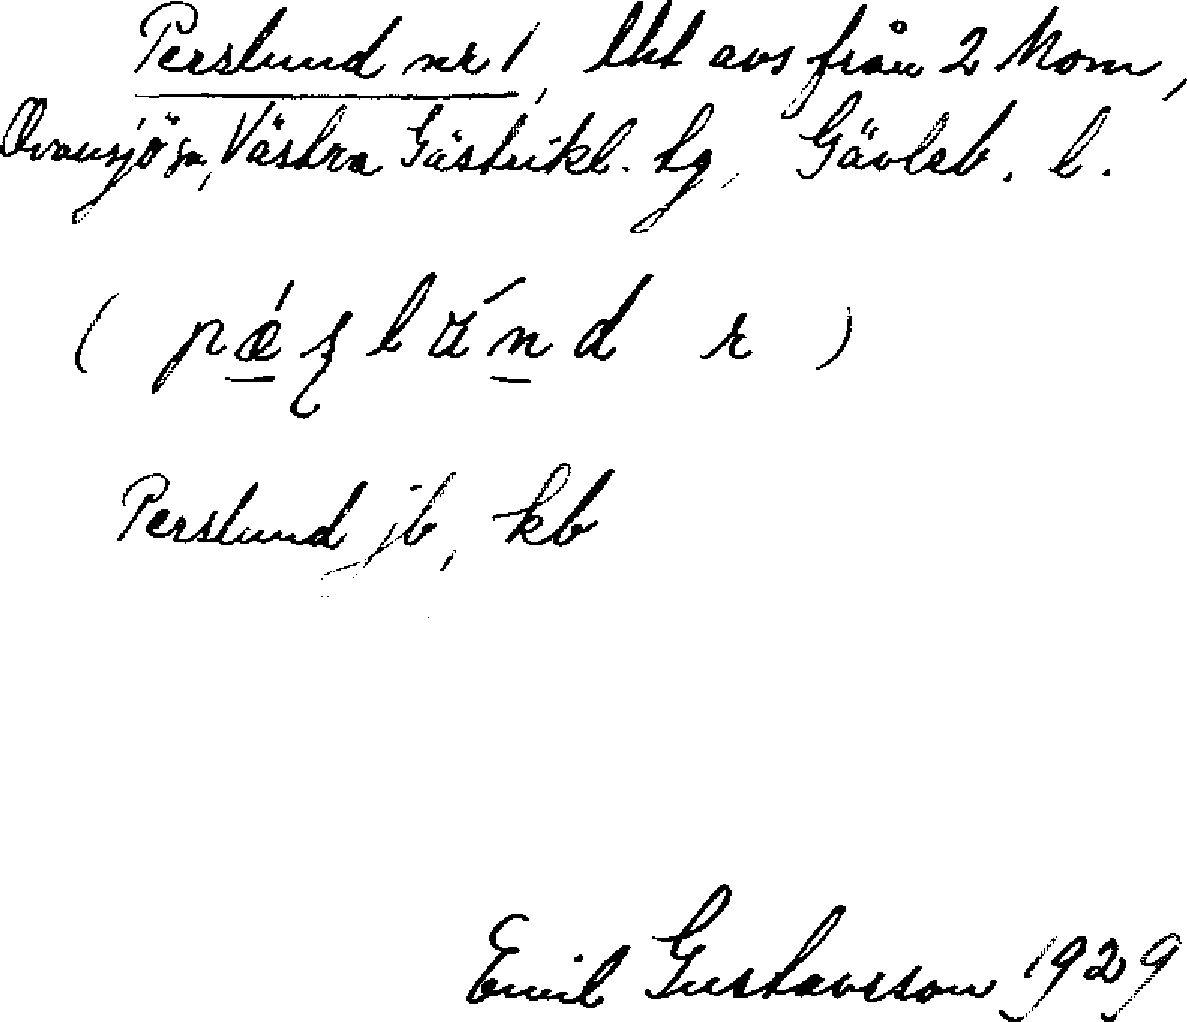 Perslund nr 1, lht avs från 2 Mom,
Ovansjö sn, Västra Gästrikl. tg, Gävleb. l.
( pǽʂlánd r )
Perslund jb, kb
Emil Gustavsson 1929